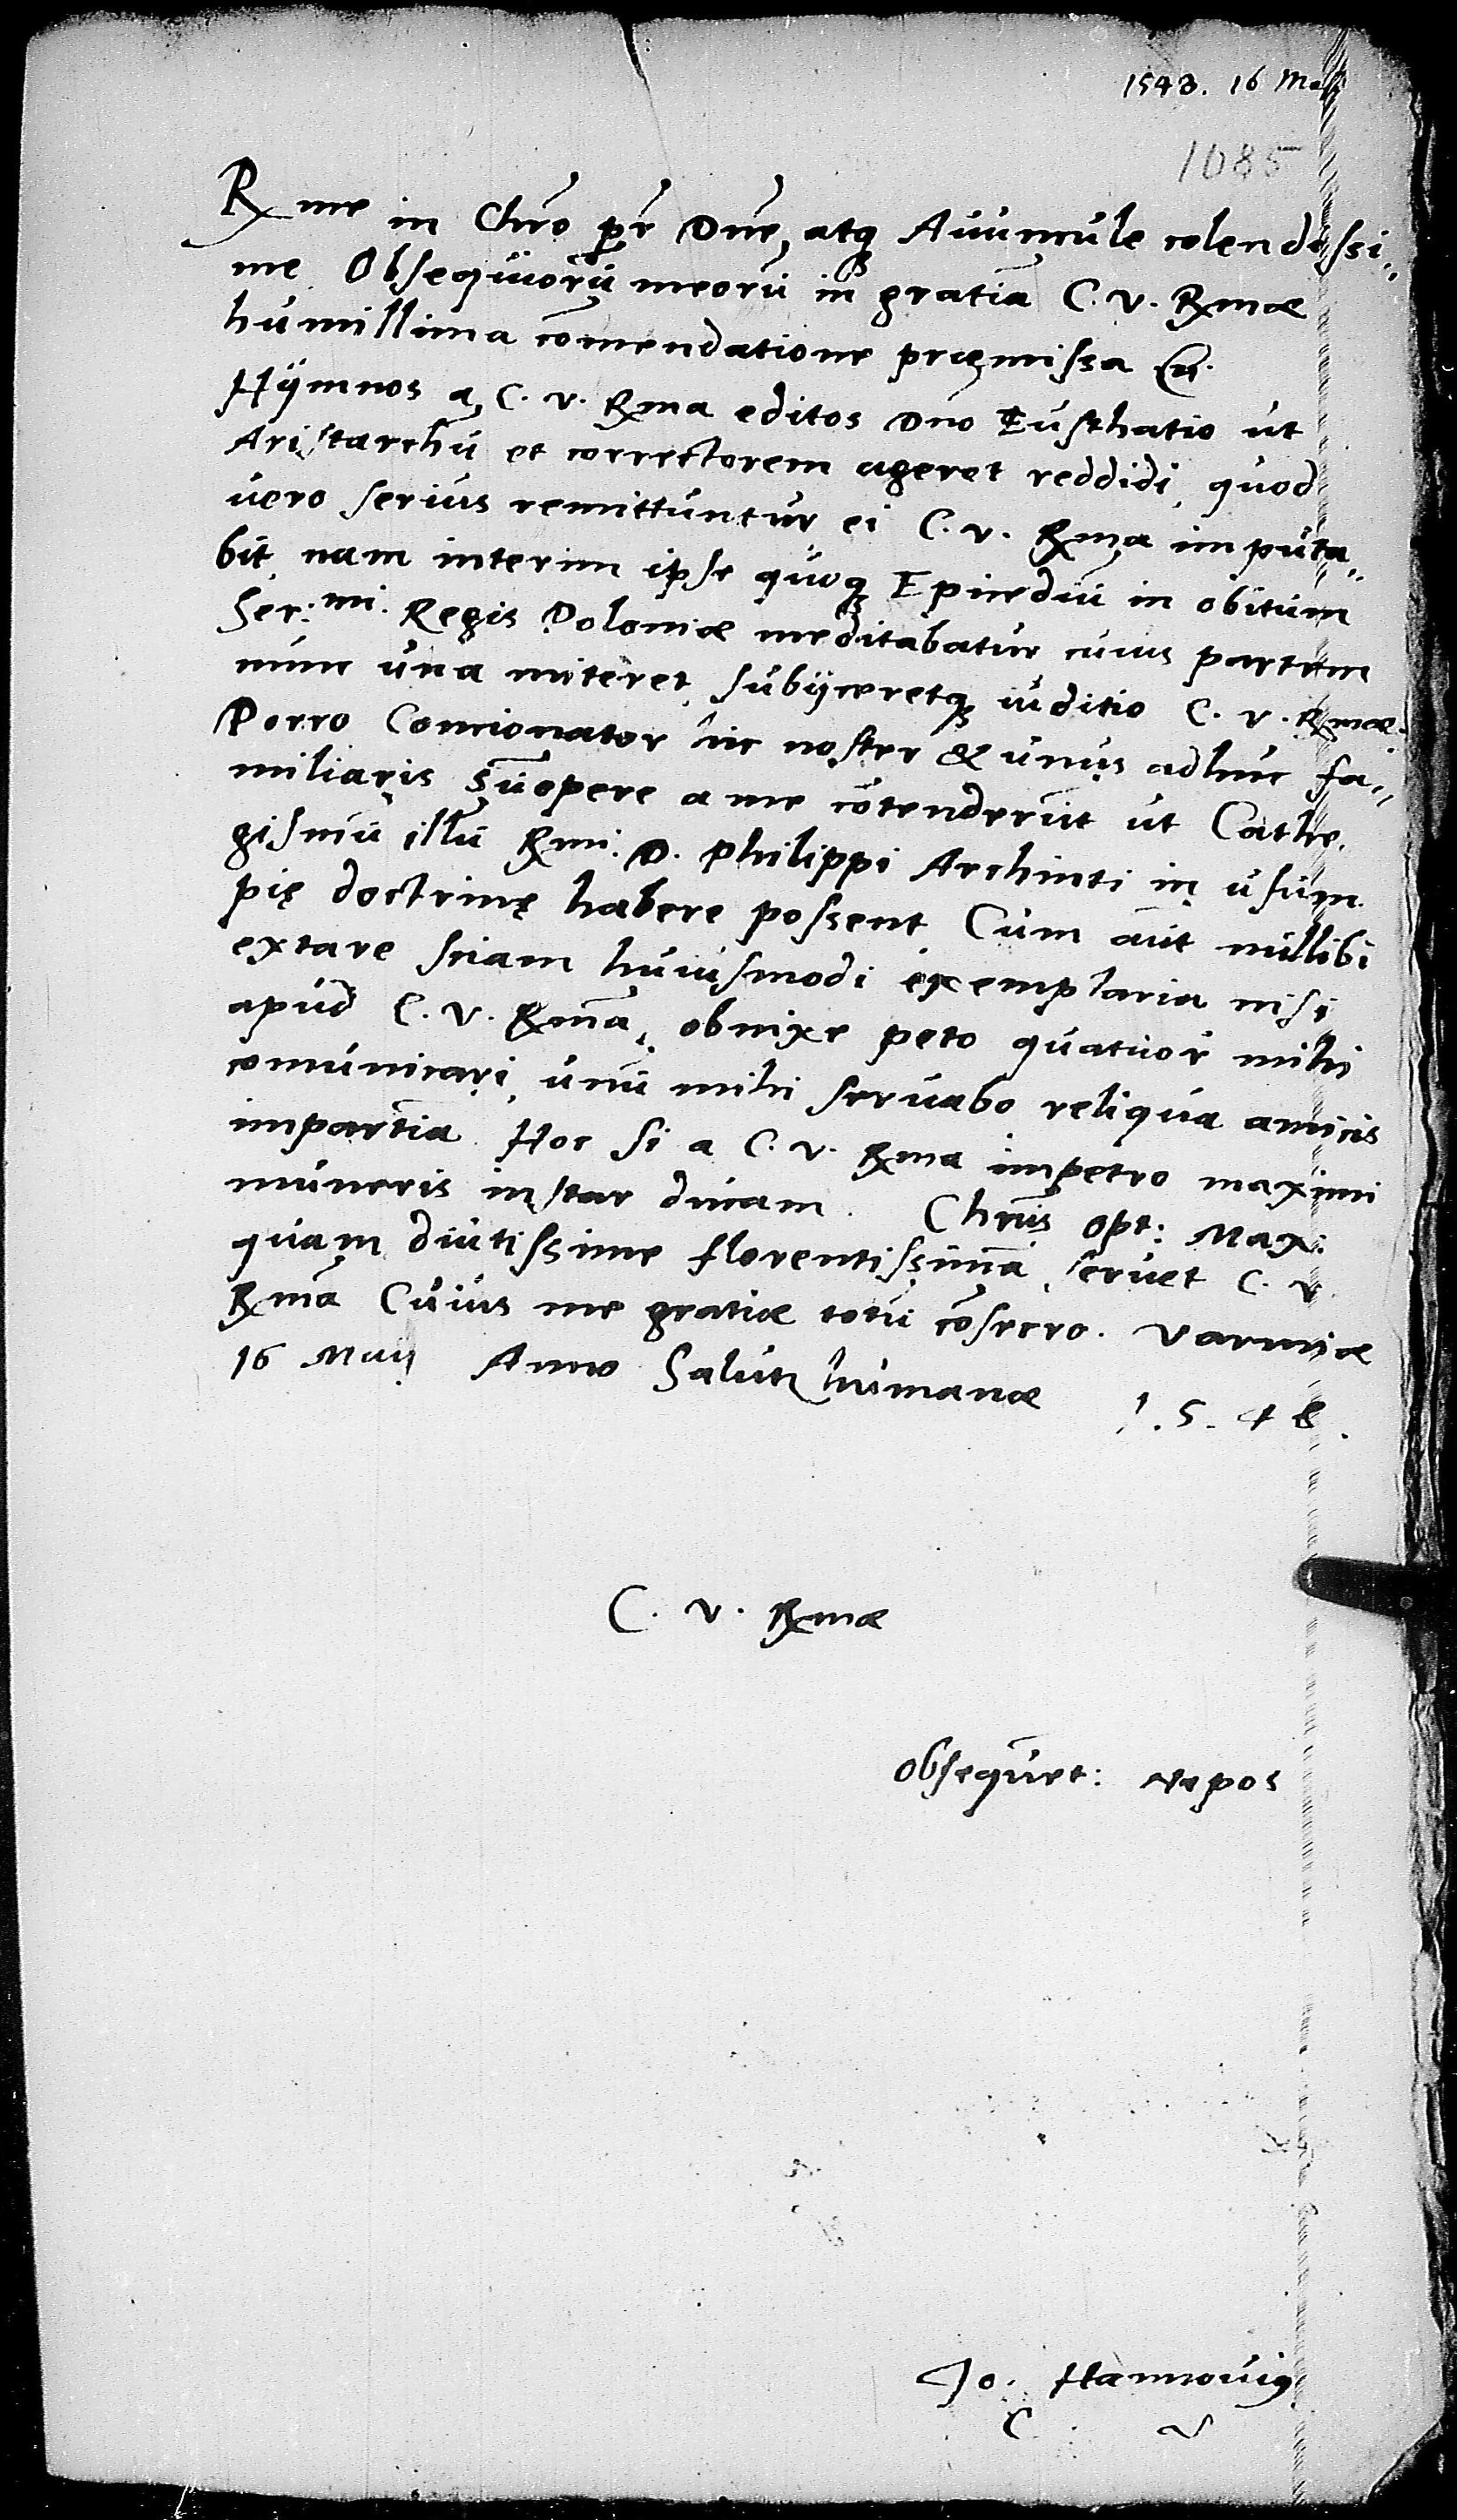 1548. 16 Maij
1085
Rme in Chro pr Dne, atq Auunculе colendissi„
me Obsequiorũ meorũ in gratiã C. v. Rmæ
humillima cõmendatione pręmissa
Hÿmnos a C. v. Rma editos Dno Eusthatio ut
Aristarchũ et correctorem ageret reddidi, quod
uero serius remittuntur ei C. v. Rma imputa„
bit, nam interim ipse quoq Epicediũ in obitum
Ser:mi. Regis Poloniæ meditabatur cuius partem
nunc una miteret, subijceretq iuditio C. v. Rmæ.
Porro Concionator hic noster & unus adhuc fa„
miliaris sũopere a me cõtenderũt ut Cathe.
gismũ illũ Rmi. D. Philippi Archinti in usum
pię doctrinę habere possent. Cum aũt nullibi
extare sciam huiusmodi exemplaria nisi
apud C. v. Rmã, obnixe peto quatuor mihi
comunicari, unũ mihi seruabo reliqua amicis
impartiã. Hoc si a C. v. Rma impetro maximi
muneris instar ducam. Chrũs opt: Max:
quam diutissime florentissimã seruet C. v.
Rmã Cuius me gratiæ totũ cõsecro. Varmiæ
16 Maij Anno Salutis humanæ 1.5.48.
C. v. Rmæ
Obsequet: Nepos
Jo. Hannouiꝰ
C. V